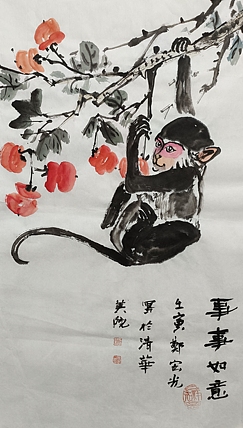 事事如意
壬寅鄭宏光
畢於清華
美院